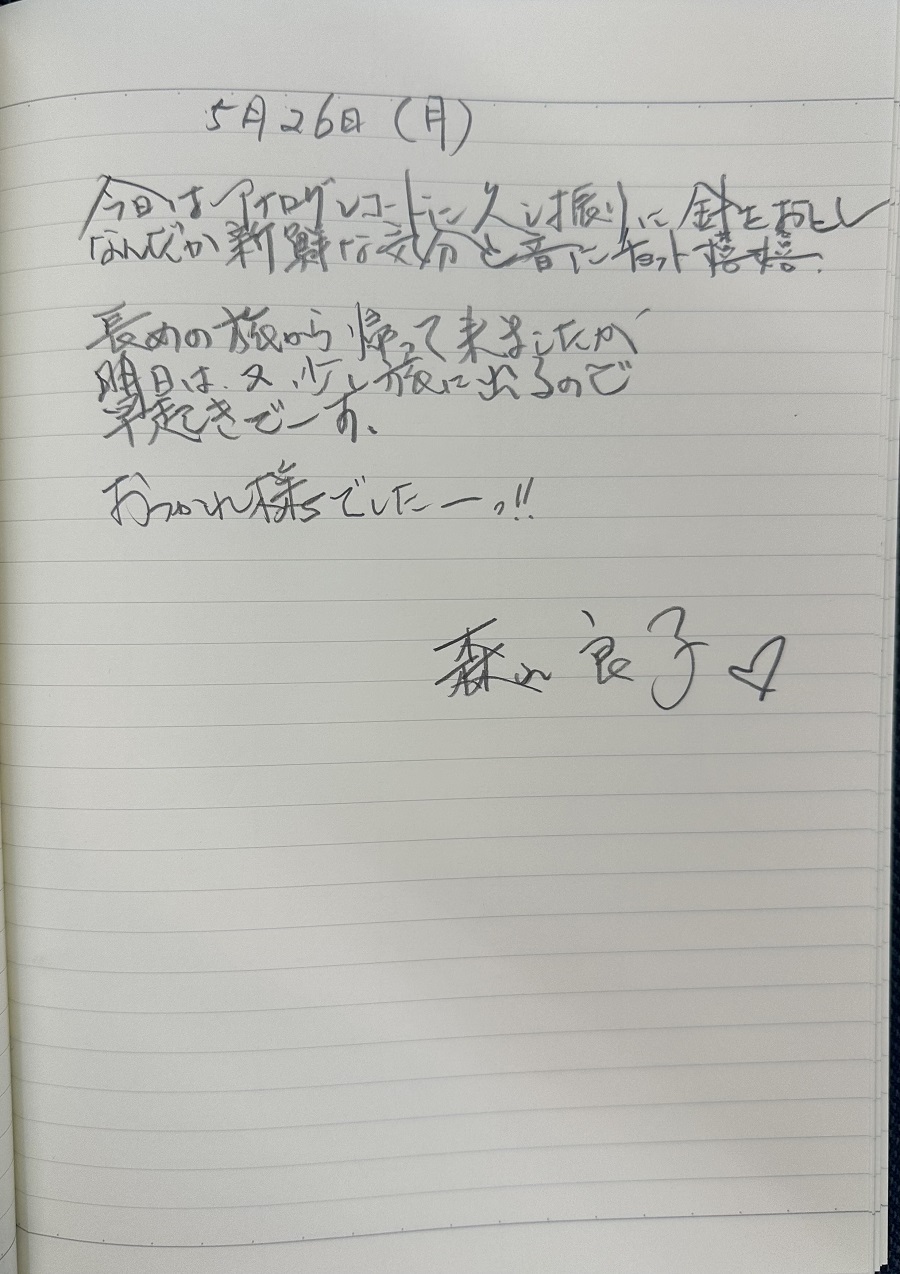 5月26日(月)
今日はアナログレコードに久し振りに針をおとし
なんだか新鮮な気分と音にチョット嬉嬉.
長めの旅から帰って来ましたが
明日は、又、少し旅に出るので
早起きでーす、
おつかれ様でしたーっ!!
森山良子♡